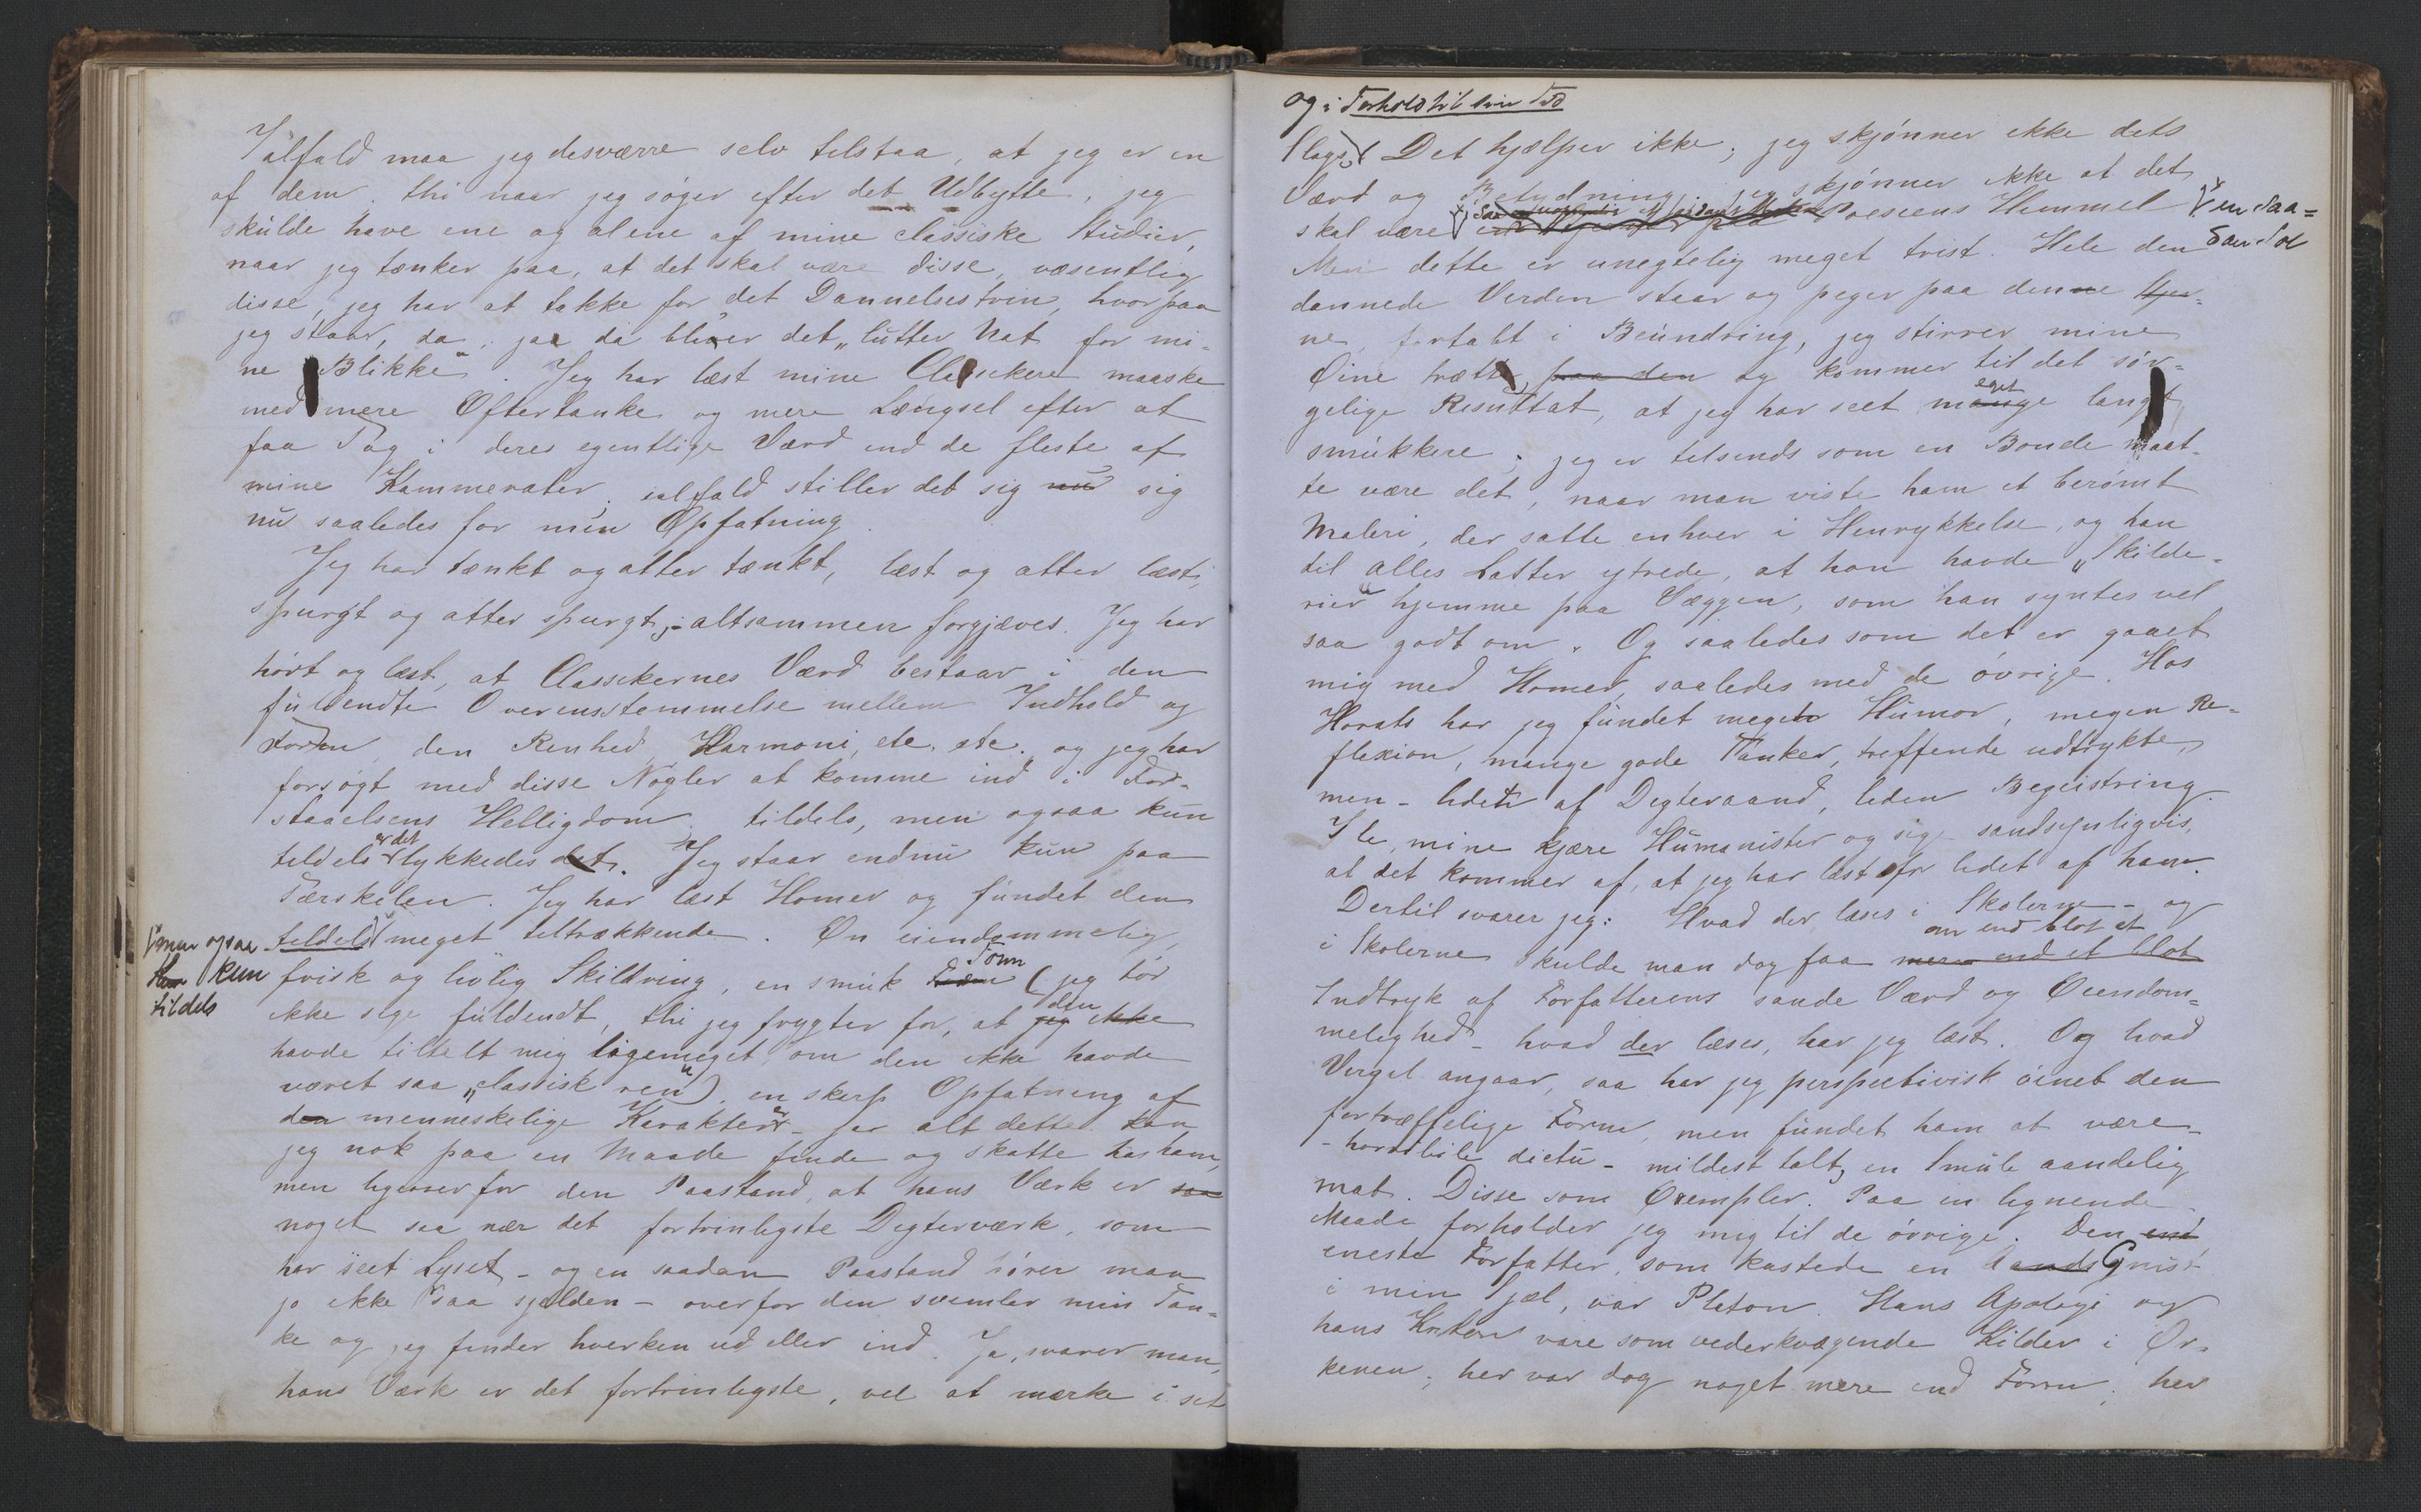 Ialfald maa jeg desværre selv tilstaa, at jeg er en
af dem, thi naar jeg søger efter det Udbytte, jeg
skulde have ene og alene af mine classiske Studier,
naar jeg tænker paa, at det skal være disse, væsentlig
disse, jeg har at takke for det Dannelsestrin, hvorpaa
jeg staar, da, ja da bliver det „lutter Nat for mi-
ne Blikke“. Jeg har læst mine Classikere maaske
med mere Eftertanke og mere Længsel efter at
faa Tag i deres egentlige Værd end de fleste af
mine Kammerater, ialfald stiller det sig nu sig
nu saaledes for min Opfatning.
Jeg har tænkt og atter tænkt, læst og atter læst,
spurgt og atter spurgt; altsammen forgjæves. Jeg har
hørt og læst, at Classikernes Værd bestaar i den
fuldendte Overensstemmelse mellem Indhold og
Form, den Renhed, Harmoni, etc. etc. og jeg har
forsøgt med disse Nøgler at komme ind i For-
staaelsens Helligdom; tildels, men ogsaa kun
er det
tildels lykkedes det. Jeg staar endnu kun paa
Tærskelen. Jeg har læst Homer og fundet den
men ogsaa tildels meget tiltrækkende. En eiendommelig,
Form
kun frisk og livlig Skildring, en smuk Form (jeg tør
tildels
den
ikke sige fuldendt, thi jeg frygter for, at jeg ikke
havde tiltalt mig ligemeget, om den ikke havde
været saa „classisk ren“), en skarp Opfatning af
den menneskelige Karakter - for alt dette kan
jeg nok paa en Maade finde og skatte hos ham,
men ligeoverfor den Paastand, at hans Værk er saa
noget saa nær det fortrinligste Digterværk, som
har seet Lyset, - og en saadan Paastand hører man
jo ikke saa sjelden - overfor den svimler min Tan-
ke og jeg finder hverken ud eller ind. Ja, svarer man,
hans Værk er det fortrinligste, vel at mærke i sit
og i Forhold til sin Tid
Slags. Det hjælper ikke; jeg skjønner ikke dets
Værd og Betydning, jeg skjønner ikke at det
skal være paa Poesiens Himmel en saa-
dan Sol
Men dette er unegtelig meget trist. Hele den
dannede Verden staar og peger paa denne Stjer-
ne, fortabt i Beundring, jeg stirrer mine
Øine trætte paa den og kommer til det sør-
eget
gelige Resultat, at jeg har seet mange langt
smukkere; jeg er tilsinds som en Bonde maat-
te være det, naar man viste ham et berømt
Maleri, der satte enhver i Henrykkelse, og han
til alles Latter ytrede, at han havde „Skilde-
rier“ hjemme paa Væggen, som han syntes vel
saa godt om. Og saaledes som det er gaaet
mig med Homer, saaledes med de øvrige. Hos
Horats har jeg fundet meget Humor, megen Re-
flexion, mange gode Tanker, træffende udtrykte,
men - lidet af Digteraand, liden Begeistring.
I le, mine kjære Humanister og sige sandsynligvis,
at det kommer af, at jeg har læst for lidet af ham.
Dertil svarer jeg: Hvad der læses i Skolerne - og
om end blot et
i Skolerne skulde man dog faa mere end et blot
Indtryk af Forfatterens sande Værd og Eiendom-
melighed - hvad der læses, har jeg læst. Og hvad
Virgil angaar, saa har jeg perspectivisk øinet den
fortræffelige Form, men fundet ham at være
- horribile dictu - mildest talt, en Smule aandelig
mat. Disse som Exempler. Paa en lignende
Maade forholder jeg mig til de øvrige. Den end
eneste Forfatter, som kastede en Aands Gnist
i min Sjæl, var Platon. Hans Apologi og
hans Kriton vare som vederkvægende Kilder i Ør-
kenen; her var dog noget mere end Form; her